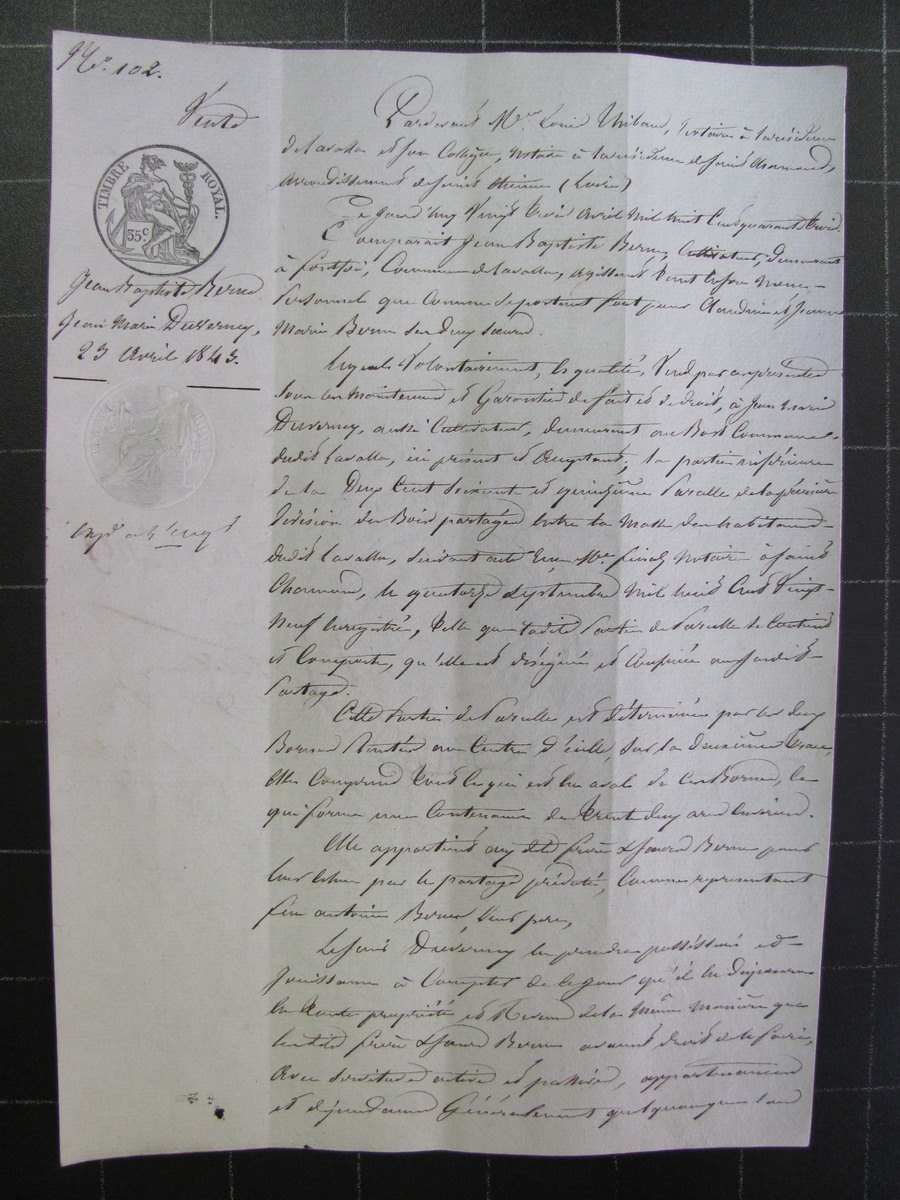 No. 102.
Vente
TIMBRE ROYAL.
35 c.
Jean Baptiste Berne
Jean Marie Duverney,
23 Avril 1843.
Pardevant Me. Louis Thibaud, Notaire à la résidence
de Lavalla et son Collègue, Notaire à la résidence de Saint Chamond,
arrondissement de Saint Etienne (Loire)
Ce jourd'huy Vingt Trois Avril Mil huit Cent quarante Trois
Comparait Jean Baptiste Berne, Cultivateur, demeurant
à Commune de Lavalla, agissant tant en son nom
personnel que comme se portant fort pour Claudine et Jeanne
Marie Berne ses deux sœurs.
Lequel Volontairement, en qualité, Vend par ces présentes
sous les Maintenue et Garantie de fait et de droit, à Jean Marie
Duverney, aussi Cultivateur, demeurant au Bost Commune
dudit Lavalla, ici présent et acceptant, la partie inférieure
de la Deux Cent Soixante et quinzième Parcelle de la première
Division des Bois partagés entre la Masse des habitants
dudit Lavalla, suivant acte reçu Me. Notaire à Saint
Chamond, le quatorze Septembre Mil huit Cent Vingt
Neuf enregistré, Telle que ladite Partie de Parcelle se Contient
et Comporte, qu'elle est désignée et confinée au susdit
Partage.
Cette Partie de Parcelle est déterminée par les deux
Bornes Plantées au Centre d'icelle, sur la Deuxième trace,
Elle Comprend tout ce qui est en aval de ces Bornes, ce
qui forme une Contenance de Trente deux ares environ.
Elle appartient aux dits frère & Sœurs Berne pour
leur échue par le partage prédaté, Comme représentant
feu Antoine Berne, leur père,
Le Sieur Duverney en prendra possession et
jouissance à Compter de ce jour qu'il en disposera
en toute propriété et Revenu de la même manière que
lesdits frère & Sœurs Berne avaient droit de le faire,
Avec servitudes actives et passives, appartenances
et dépendances Généralement quelconques sans